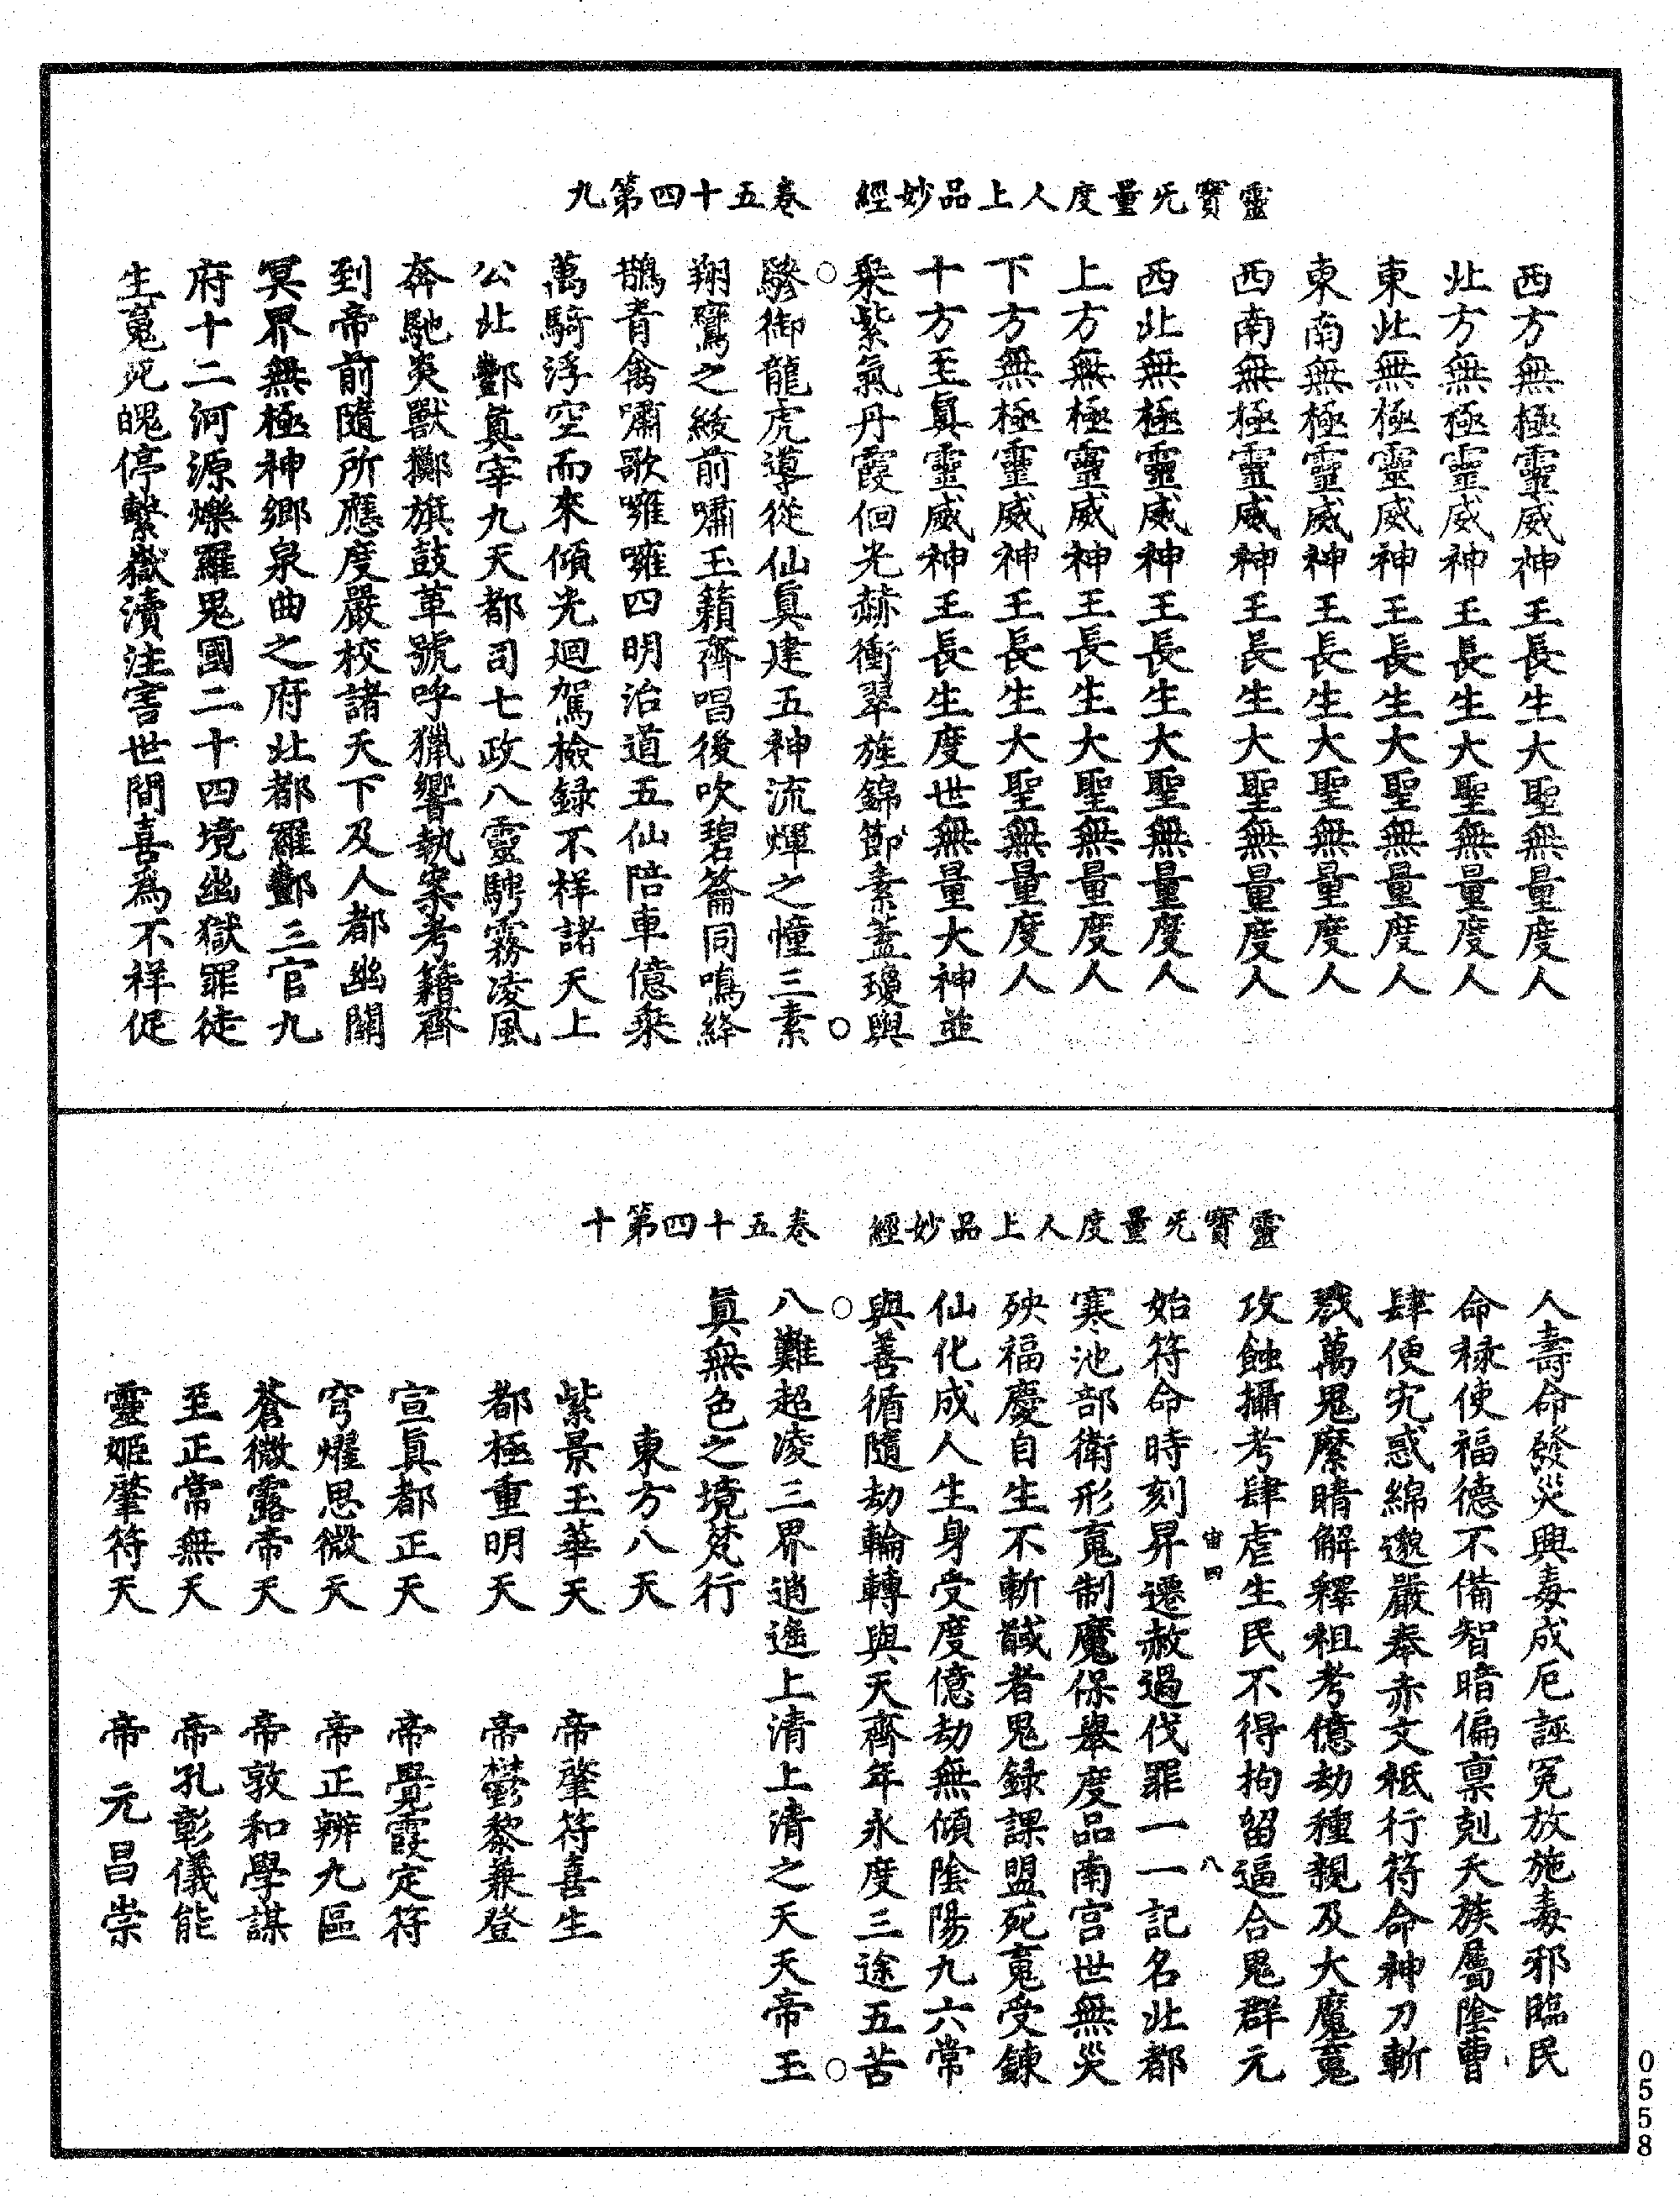 靈寶无量度人上品妙經　卷五十四第九
西方無極靈威神王長生大聖無量度人
北方無極靈威神王長生大聖無量度人
東北無極靈威神王長生大聖無量度人
東南無極靈威神王長生大聖無量度人
西南無極靈威神王長生大聖無量度人
西北無極靈威神王長生大聖無量度人
上方無極靈威神王長生大聖無量度人
下方無極靈威神王長生大聖無量度人
十方至眞靈威神王長生度世無量大神並
乗紫氣丹霞佪光赫衝翠旌錦節素蓋瓊輿
驂御龍虎導從仙眞建五神流煇之幢三素
翔鸞之綾前嘯玉籟齊唱後吹碧籥同鳴絳
鵲青禽嘯歌嗈嗈四明治道五仙陪車億乗
萬騎浮空而來傾光迴駕檢録不祥諸天上
公北酆眞宰九天都司七政八靈騁霧凌風
奔馳炎獸擲旗鼓革號呼獵響執案考籍齊
到帝前隨所應度嚴校諸天下及人都幽關
冥界無極神鄉泉曲之府北都羅酆三官九
府十二河源爍羅鬼國二十四境幽獄罪徒
生䰟死魄停繫嶽瀆注害世間喜爲不祥促
靈寶无量度人上品妙經　卷五十四第十
人壽命發災興毒成厄誣寃放施毒邪臨民
命禄使福德不備智暗偏禀剋夭族屬隂曹
肆便宄惑綿邈嚴奉赤文祗行符命神刀斬
戮萬鬼縻暗解釋祖考億劫種親及大魔䰟
攻蝕攝考肆虐生民不得拘留逼合鬼群元
宙四　八
始符命時刻昇遷赦過伐罪一一記名北都
寒池部衛形䰟制魔保舉度品南宫世無災
殃福慶自生不斬馘者鬼録課盟死䰟受鍊
仙化成人生身受度億劫無傾隂陽九六常
與善循隨劫輪轉與天齊年永度三途五苦
八難超凌三界逍遥上清上清之天天帝玉
眞無色之境梵行
東方八天
紫景玉華天　帝肇符喜生
都極重明天　帝鬱黎兼登
宣眞都正天　帝覺霞定符
穹燿思微天　帝正辨九區
蒼微露帝天　帝敦和學謀
至正常無天　帝孔彰儀能
靈姬肇符天　帝元昌崇
0558